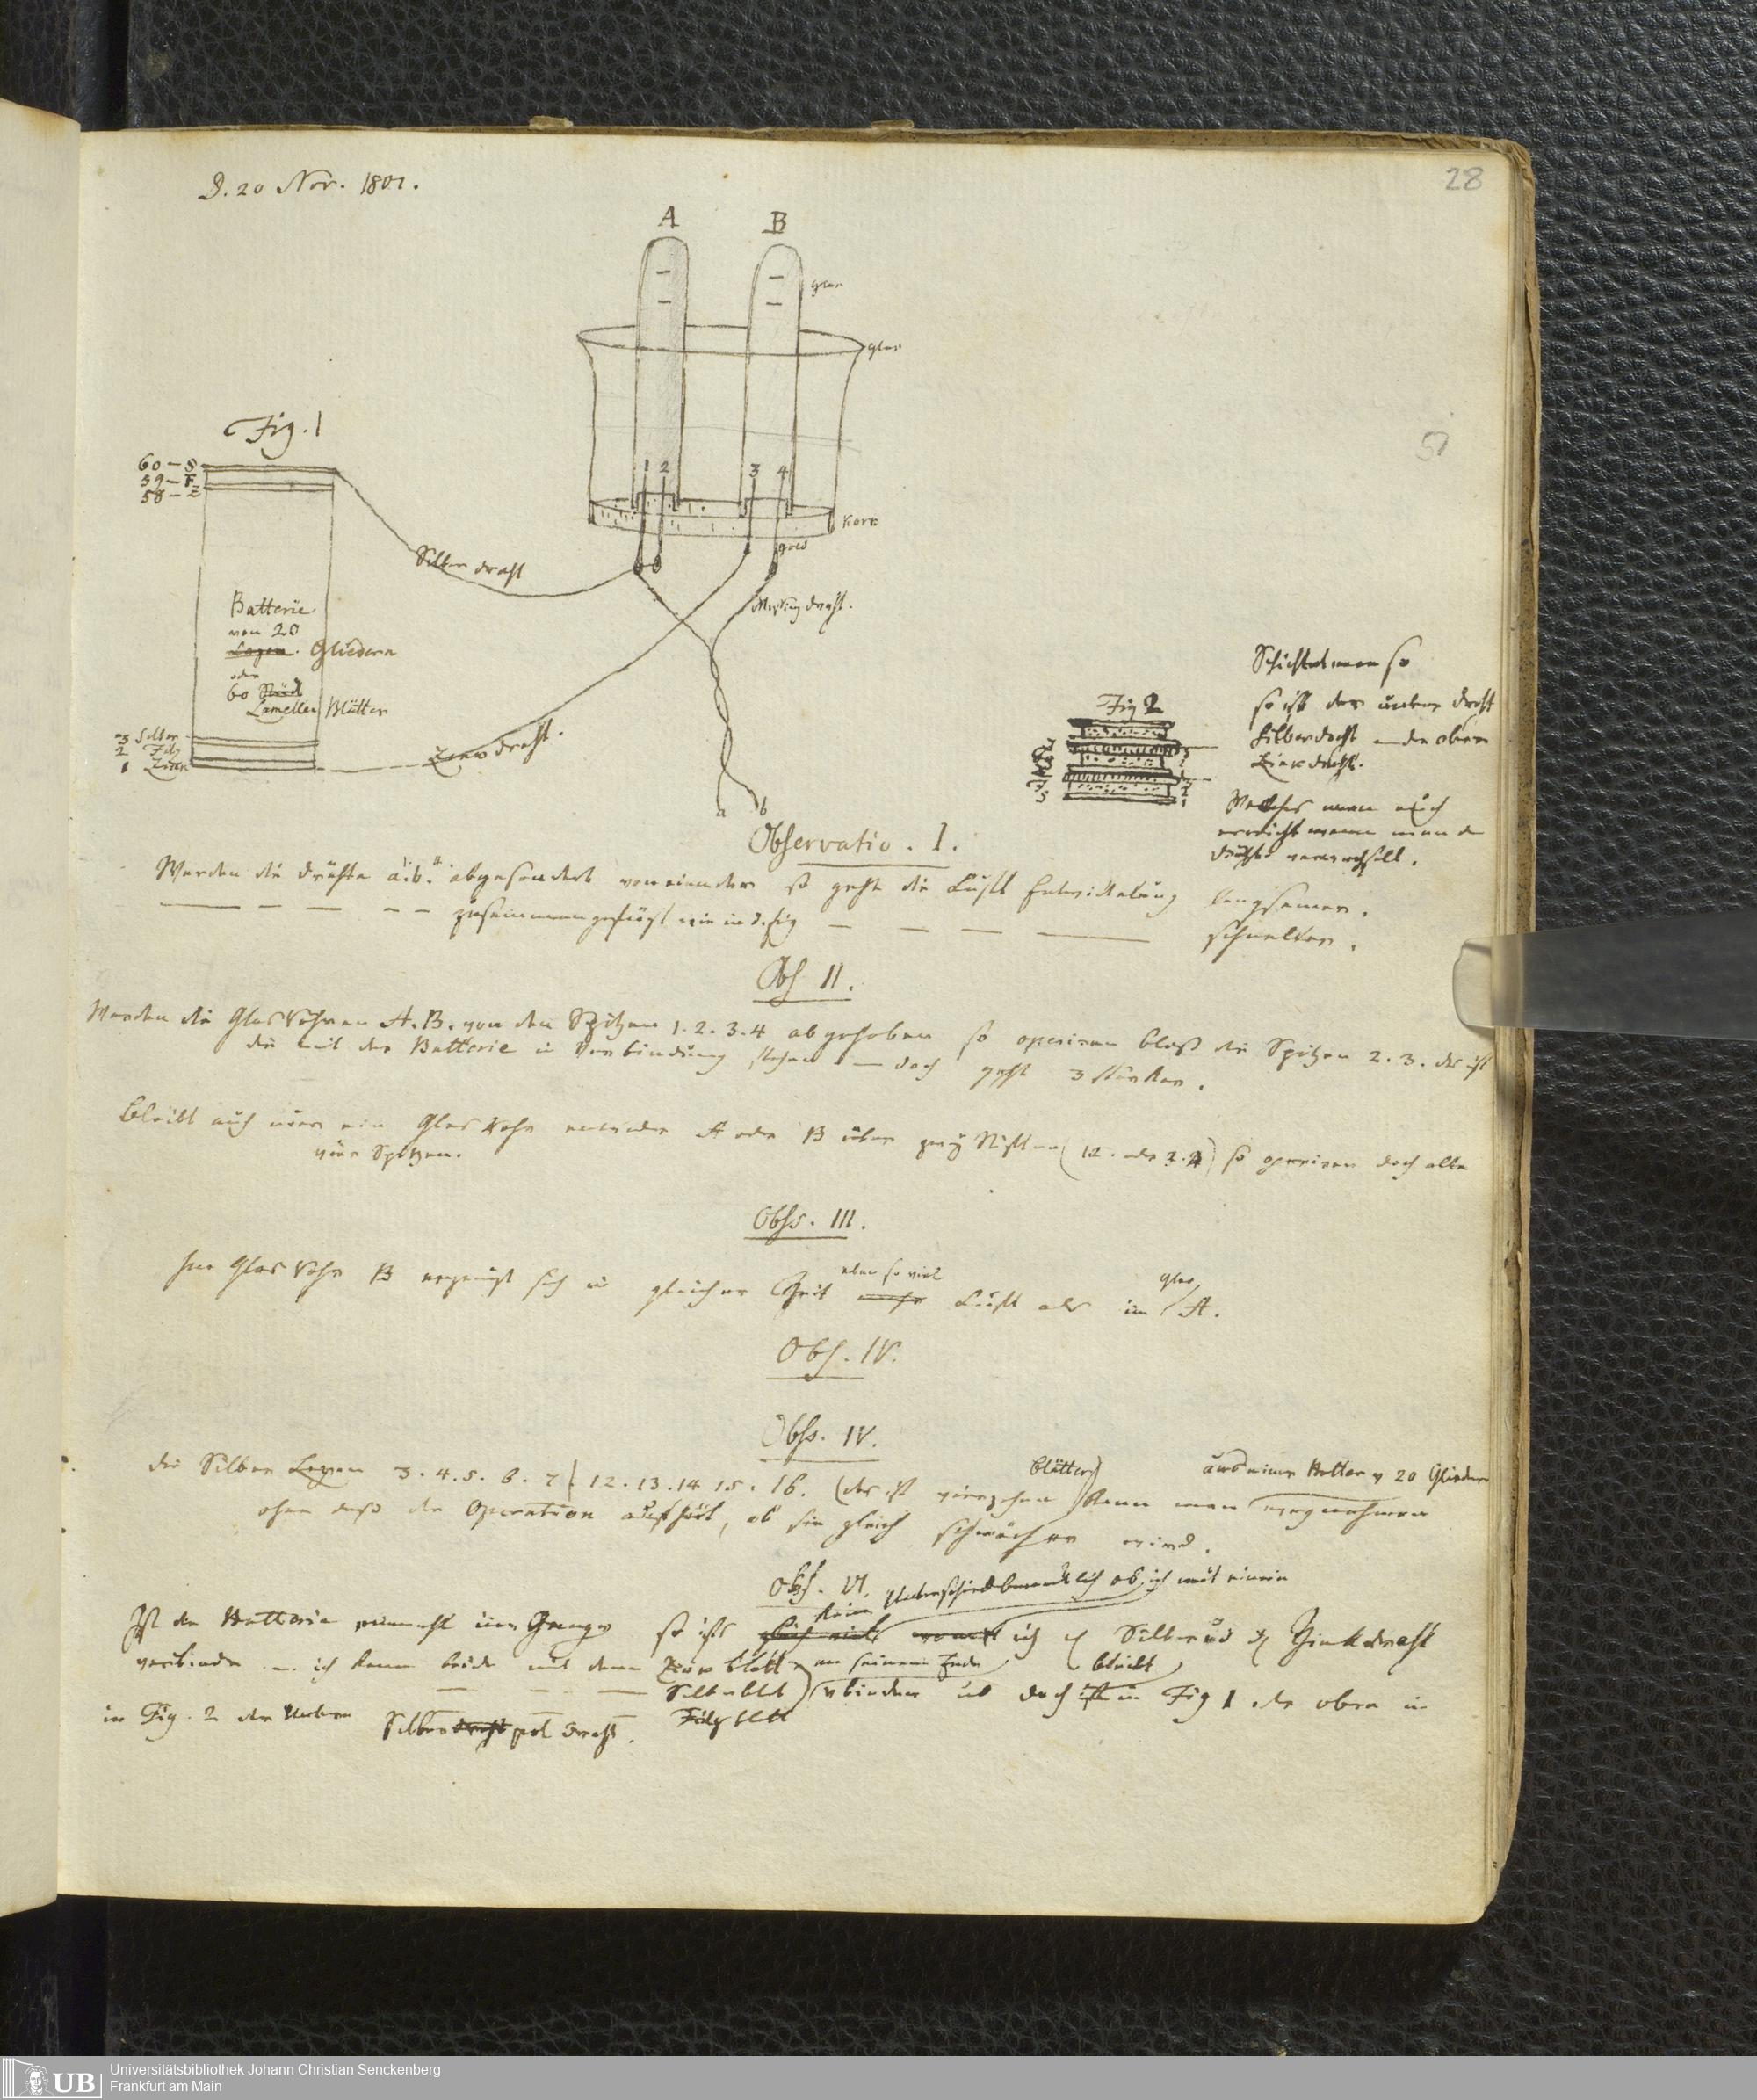 28
D. 20 Nov. 1801.
A B
glas
glas
Fig. 1
60 – S
59 – F
58 – Z
1 2 3 4
Kork
gold
Silber draht
Messing draht.
Batterie
von 20
Lagen. Gliedern
oder
60 Stück
Lamellen Blätter
3 Silber
2 Filz
1 Zink
Zink draht.
a b
Fig 2
Schichtet man so
so ist der untere draht
Silberdraht und der obere
Zinkdraht.
Welches man auch
erreicht wenn man die
Drähte verwechselt.
Observatio. I.
Werden die drähte a. b. abgesondert voneinander so geht die Luft Entwickelung langsamer.
zusammengefügt wie in d. fig schneller.
Obs II.
Werden die Glas Röhren A. B. von den Spitzen 1. 2. 3. 4 abgehoben so operiren bloß die Spitzen 2. 3. das ist
die mit der Batterie in Verbindung stehen — doch geht 3 stärker.
Bleibt auch nur ein Glas Rohr entweder A oder B über zwey Stiften (12. oder 3.4) so operiren doch alle
vier Spitzen.
Obss. III.
Im Glas Rohr B erzeugt sich in gleicher Zeit eben so viel mehr Luft als im Glas A.
Obs. IV.
Obss. IV.
Die Silber Lagen 3. 4. 5. 6. 7 | 12. 13. 14 15. 16. (das ist vierzehen Blätter) kann man aus einer Batter v 20 Glieder wegnehmen
ohne daß die Operation aufhört, ob sie gleich schwächer wird.
Obs. VI.
Ist die Batterie einmahl im Gange so ists kein Unterschied bemerklich ob ich mit einem
Silber und Zinkdraht
verbinde ich kann beide mit dem Zink blatt an seinem Ende
Silberblatt verbinden und doch bleibt ist in Fig 1 der obere in
in Fig. 2 der Untere Silber draht pol draht. Filzblatt
Universitätsbibliothek Johann Christian Senckenberg
Frankfurt am Main
UB